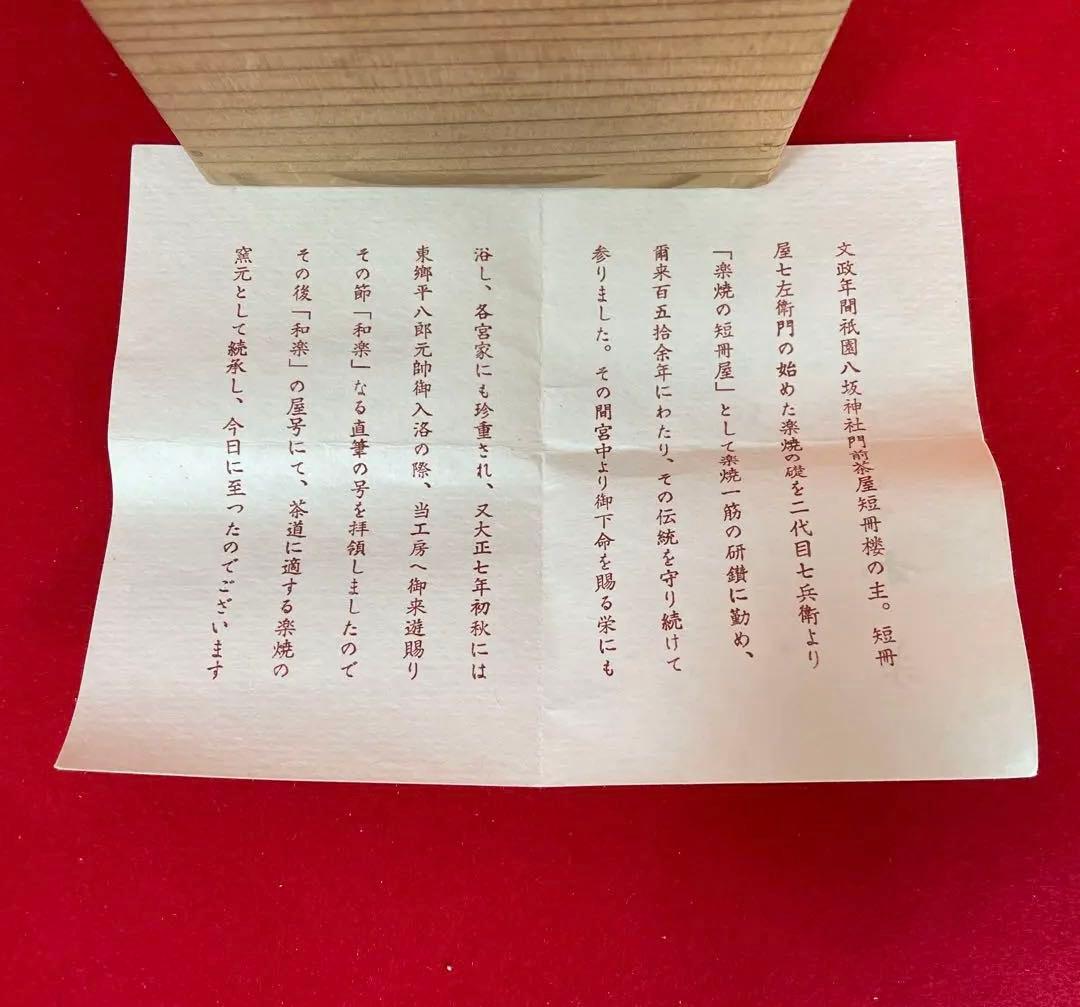 文政年間祇園八坂神社門前茶屋短冊楼の主。短冊
屋七左衛門の始めた楽焼の礎を二代目七兵衛より
「楽焼の短冊屋」として楽焼一筋の研鑽に勤め、
爾来百五拾余年にわたり、その伝統を守り続けて
参りました。その間宮中より御下命を賜る栄にも
浴し、各宮家にも珍重され、又大正七年初秋には
東郷平八郎元帥御入洛の際、当工房へ御来遊賜り
その節「和楽」なる直筆の号を拝領しましたので
その後「和楽」の屋号にて、茶道に適する楽焼の
窯元として続承し、今日に至ったのでございます